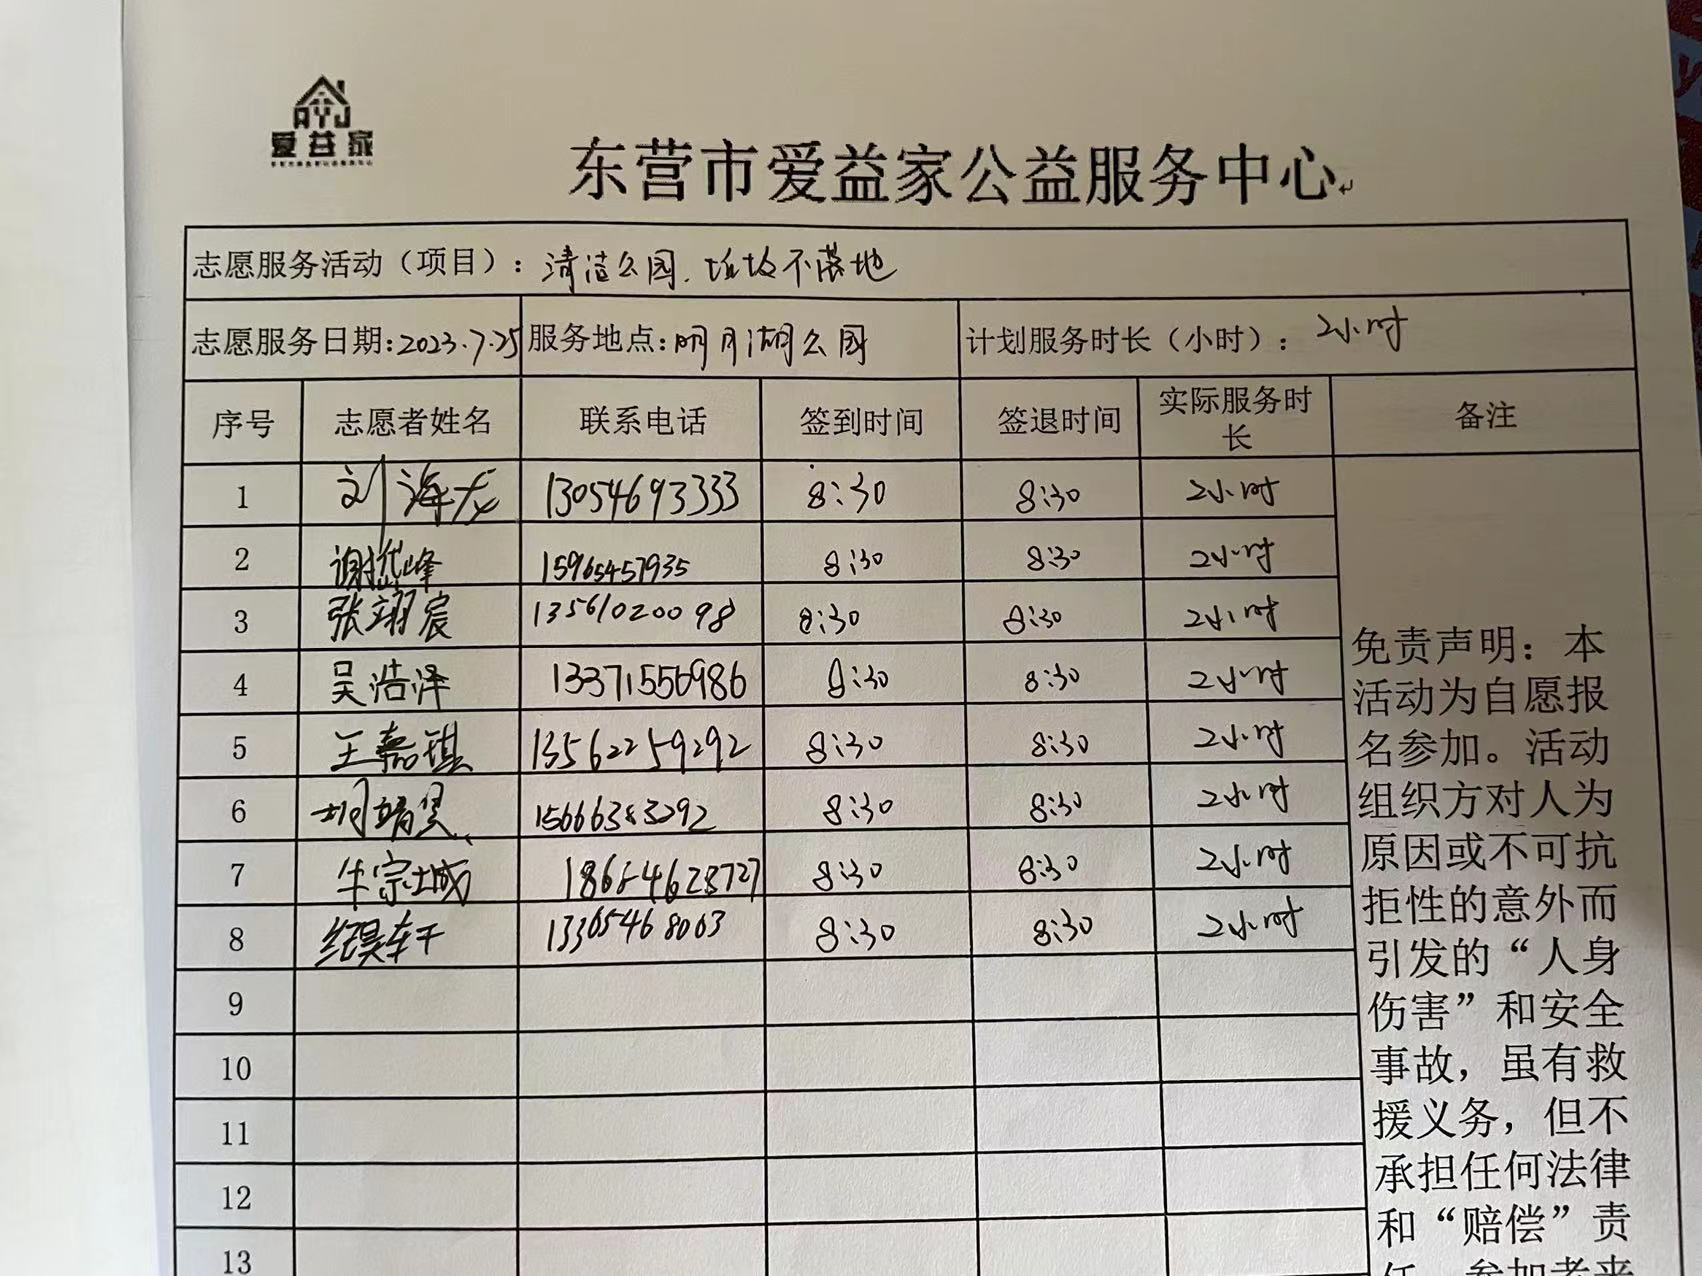 AYJ
爱益家
东营市爱益家公益服务中心
志愿服务活动（项目）：清洁公园.垃圾不落地
志愿服务日期:2023.7.25 服务地点:明月湖公园 计划服务时长（小时）：2小时
序号 志愿者姓名 联系电话 签到时间 签退时间 实际服务时长 备注
1 刘海龙 13054693333 8:30 8:30 2小时
2 谢岱峰 15965457935 8:30 8:30 2小时
3 张翊宸 13561020098 8:30 8:30 2小时
4 吴浩泽 13371556986 8:30 8:30 2小时
5 王嘉琪 13562259292 8:30 8:30 2小时
6 15666383292 8:30 8:30 2小时
7 牛宗城 18654623727 8:30 8:30 2小时
8 纪昊轩 13365468063 8:30 8:30 2小时
9
10
11
12
13
免责声明：本
活动为自愿报
名参加。活动
组织方对人为
原因或不可抗
拒性的意外而
引发的“人身
伤害”和安全
事故，虽有救
援义务，但不
承担任何法律
和“赔偿”责
任，参加者来